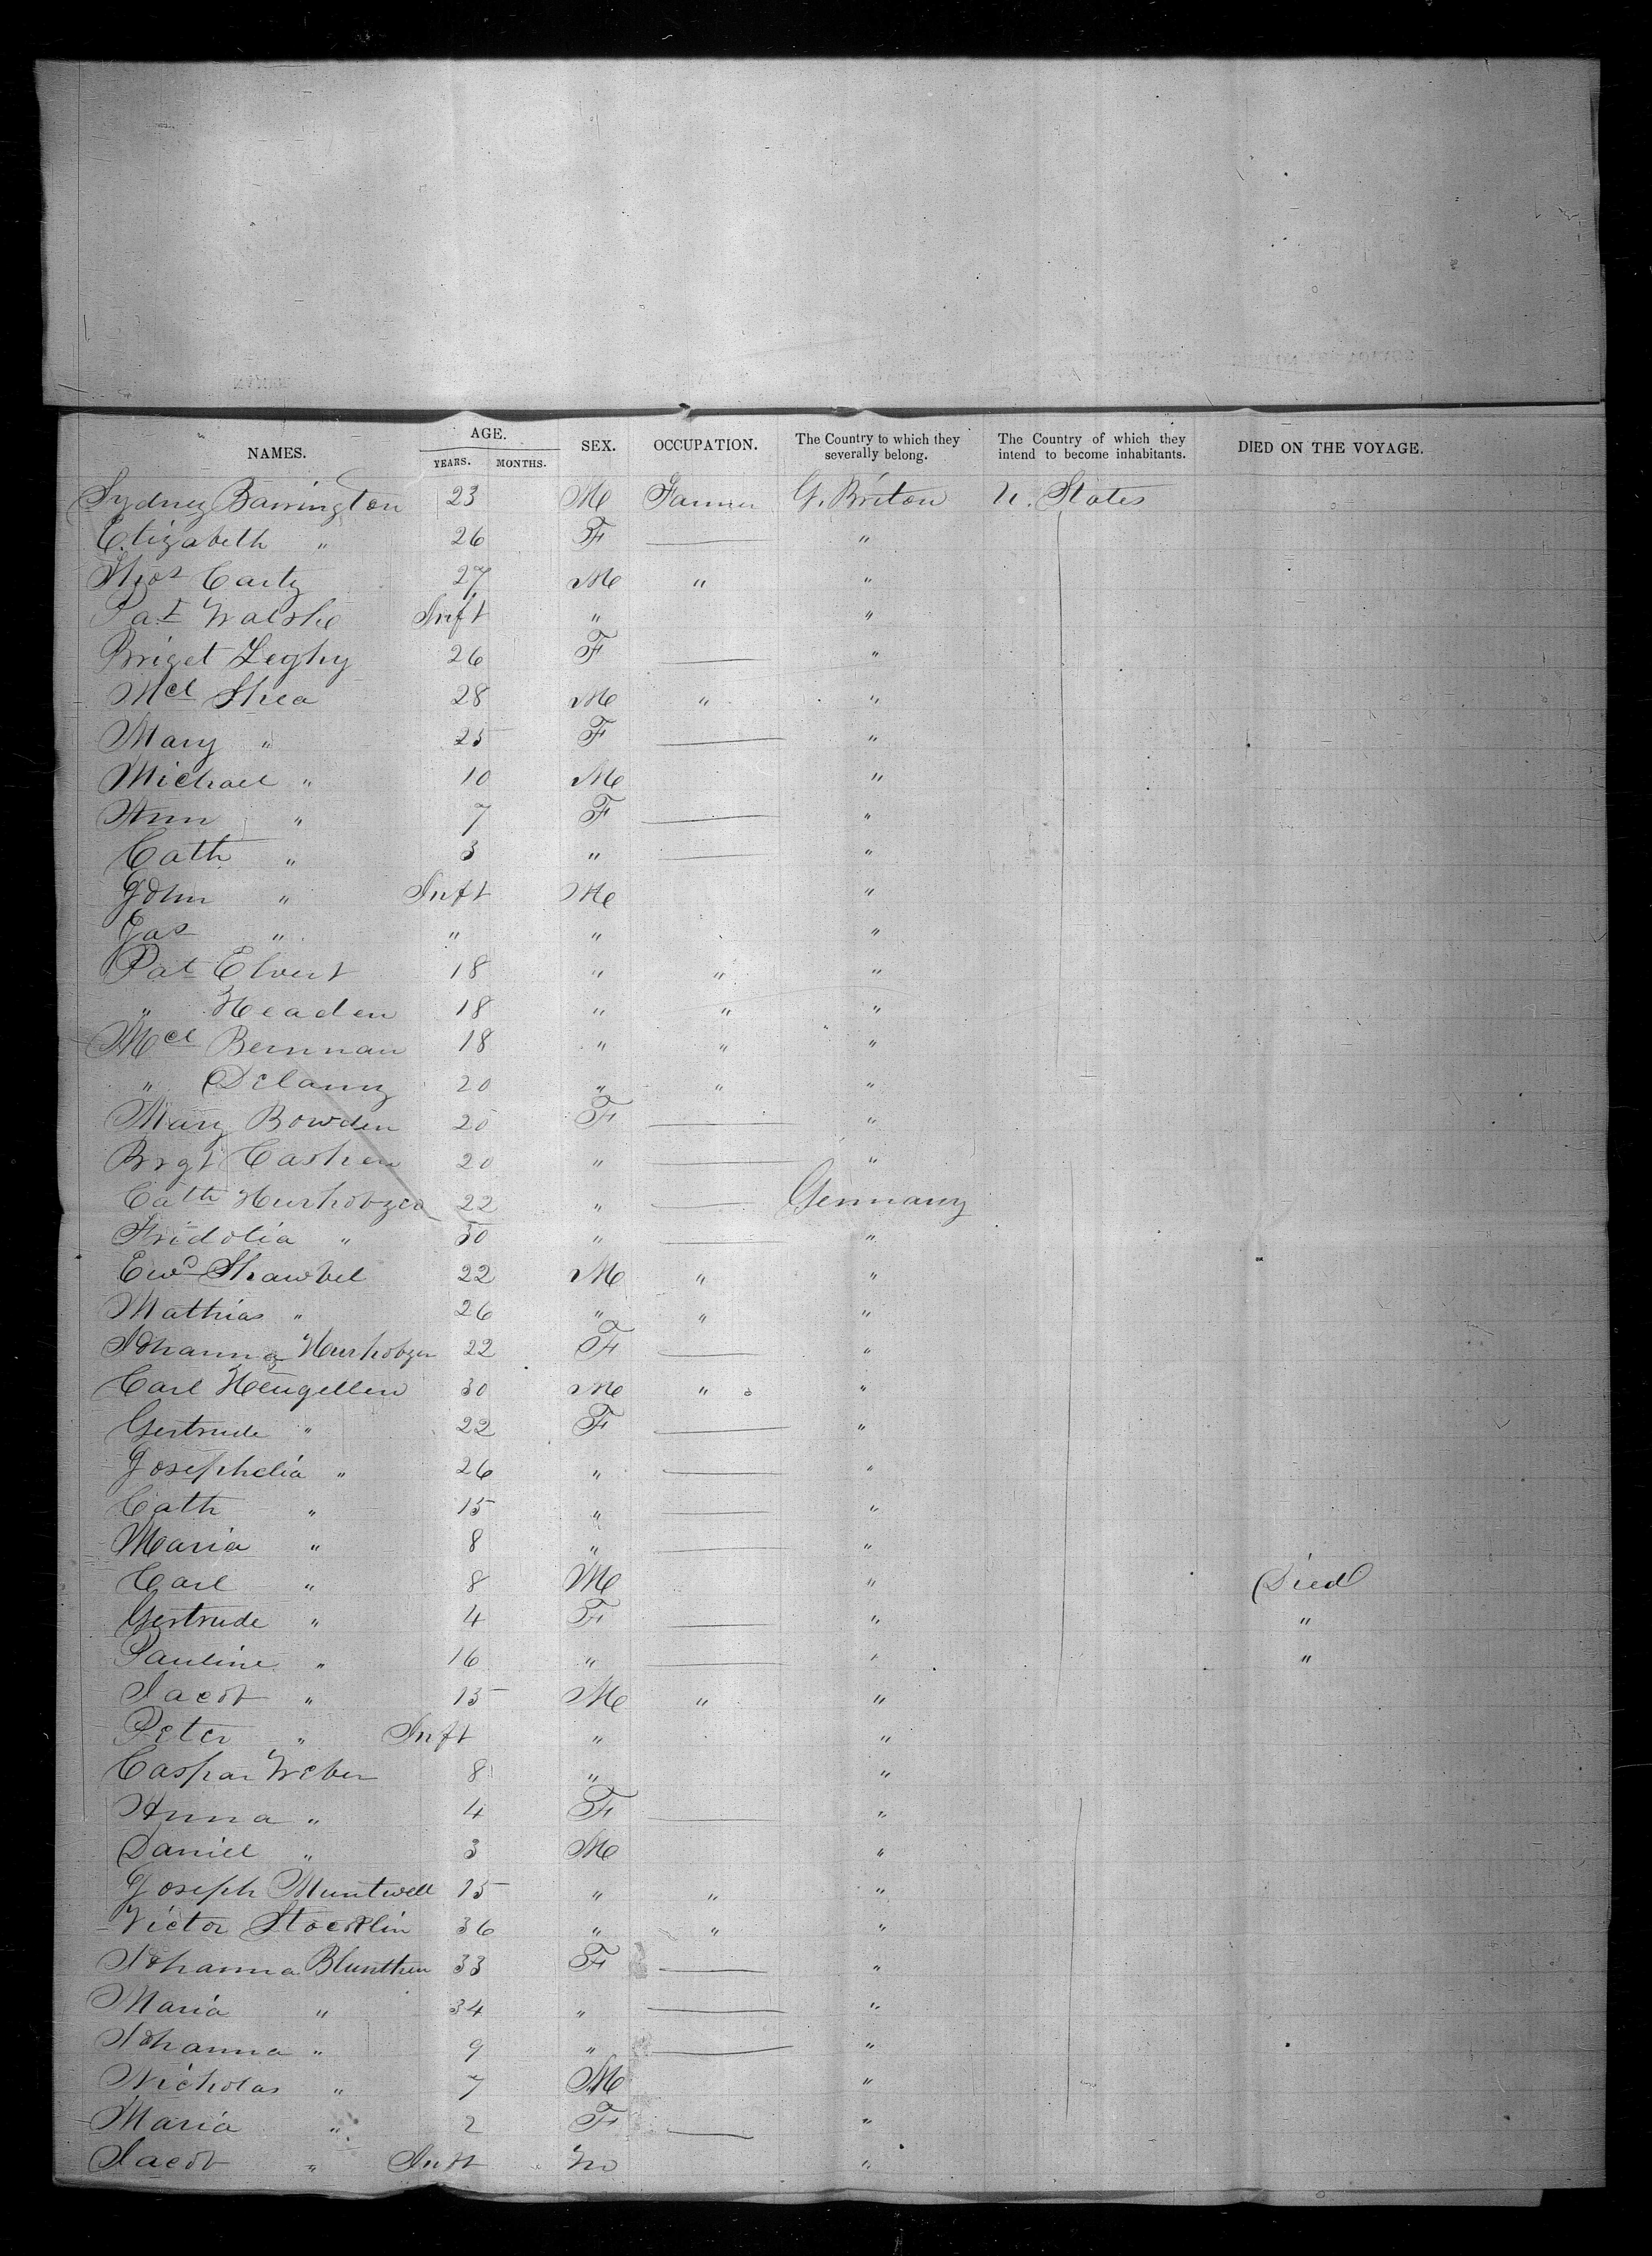 NAMES. AGE. SEX. OCCUPATION. The Country to which they severally belong. The Country of which they intend to become inhabitants. DIED ON THE VOYAGE.
YEARS. MONTHS.
Sydney Barrington 23 M Farmer G. Briton U. States
Elizabeth " 26 F —— "
Thos Carty 27 M " "
Pat Walshe Inft " "
Briget Leghy 26 F —— "
Mcl Shea 28 M " "
Mary " 25 F —— "
Michael " 10 M "
Ann " 7 F —— "
Cath " 3 " —— "
John " Inft M "
Jas " " " "
Pat Elvert 18 " " "
" Headen 18 " " "
Mcl Bernnan 18 " " "
" Delanny 20 " " "
Mary Bowden 20 F —— "
Brgt Cashen 20 " —— "
Cath Hurhobzer 22 " —— Germany
Fridolia " 30 " —— "
Ewd Shawbel 22 M " "
Mathias " 26 " " "
Johanna Hurhobzer 22 F —— "
Carl Heugellen 30 M " "
Gertrude " 22 F —— "
Josephelia " 26 " —— "
Cath " 15 " —— "
Maria " 8 " —— "
Carl " 8 M " Died
Gertrude " 4 F —— " "
Pauline " 16 " —— " "
Jacob " 15 M " "
Peter " Inft " "
Caspar Weber 8 " "
Anna " 4 F —— "
Daniel " 3 M "
Joseph Muntwell 15 " " "
Victor Stocklin 36 " " "
Johanna Blunthen 33 F —— "
Maria " 34 " —— "
Johanna " 9 " —— "
Nicholas " 7 M "
Maria " 2 F —— "
Jacob " Inft M "